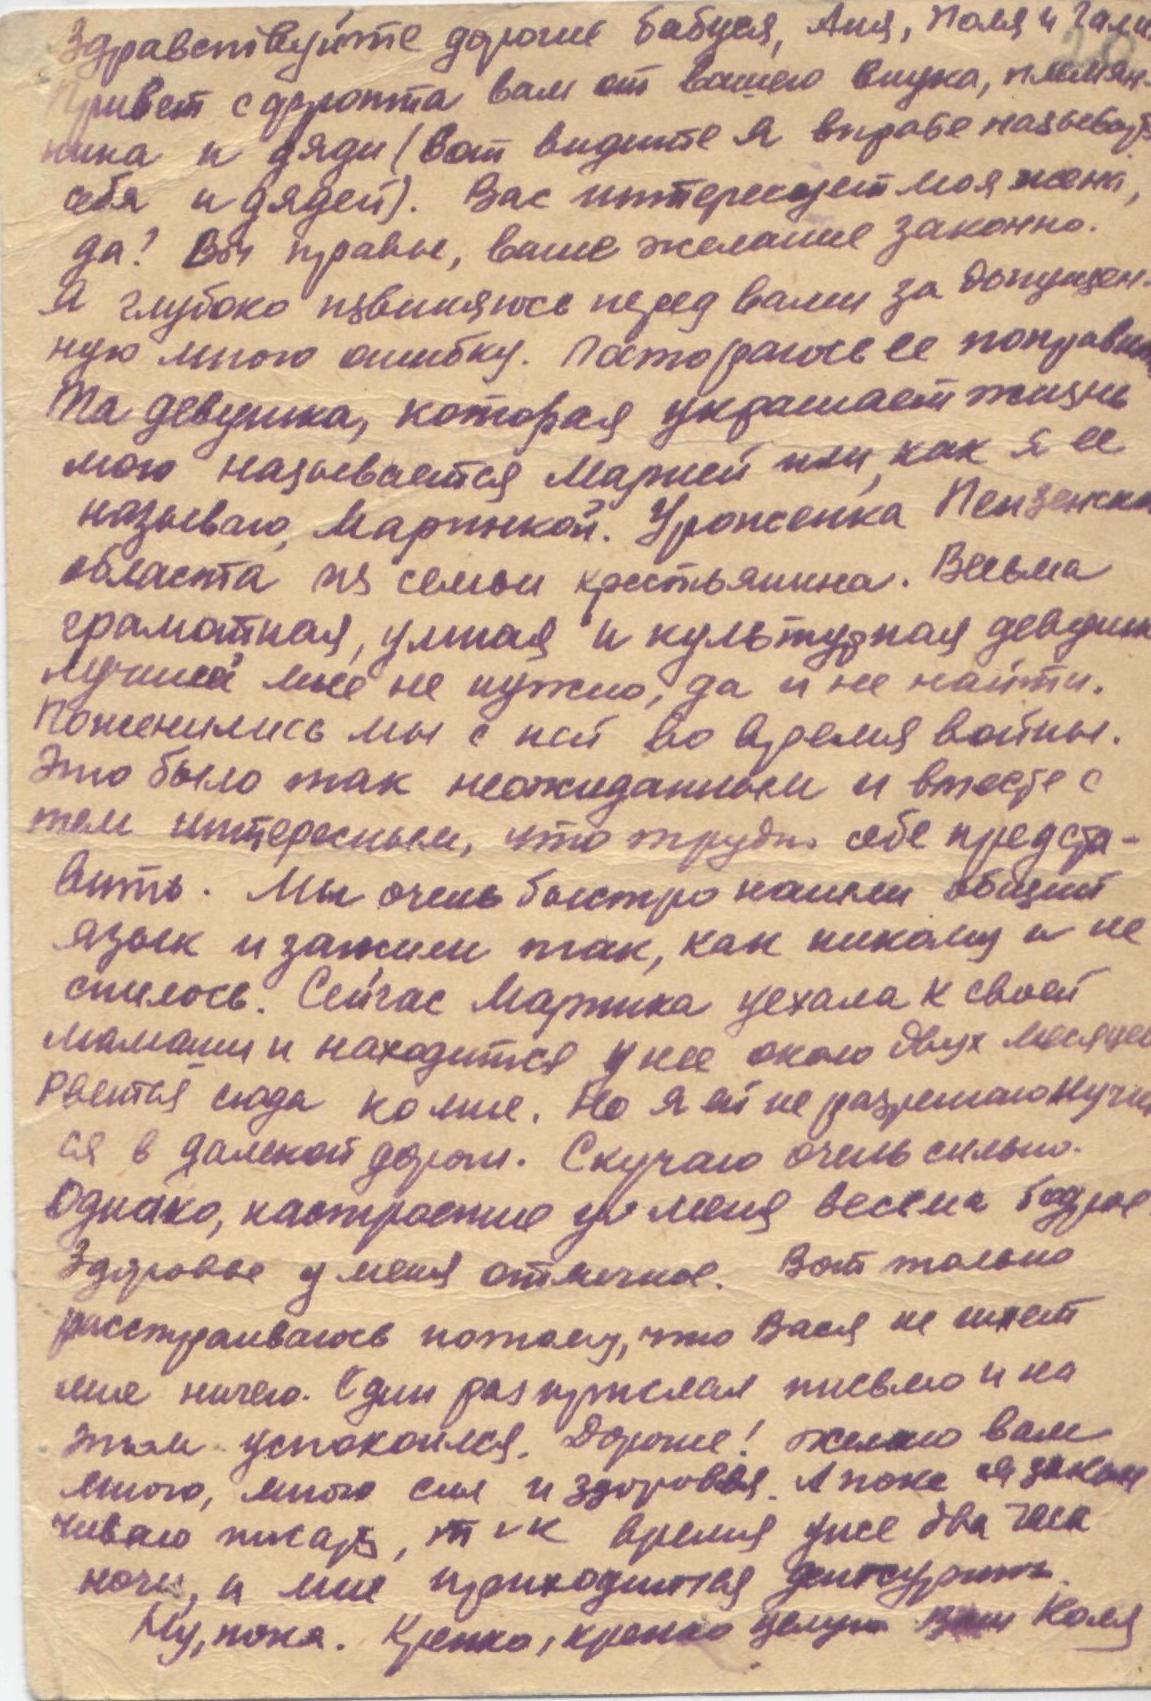 Здравствуйте дорогие бабуся, Аня, Поля и Галя
Привет с фронта вам от вашего внука, племян-
ника и дяди (вот видите я вправе называть
себя и дядей). Вас интересует моя жена,
да? Вы правы, ваше желание законно.
Я глубоко извиняюсь перед вами за допущен-
ную мною ошибку. Постараюсь ее поправить
Та девушка, которая украшает жизнь
мою называется Марией или, как я ее
называю, Маринкой. Уроженка Пензенской
области из семьи крестьянина. Весьма
грамотная, умная и культурная девушка
лучшей мне не нужно, да и не найти.
Поженились мы с ней во время войны.
Это было так неожиданным и вместе с
тем интересным, что трудно себе предста-
вить. Мы очень быстро нашли общий
язык и зажили так, как никому и не
снилось. Сейчас Маринка уехала к своей
мамаши и находится у нее около двух месяцев
Рвется сюда ко мне. Но я ей не разрешаю мучит
ся в далекой дороги. Скучаю очень сильно.
Однако, настроение у меня весьма бодрое.
Здоровье у меня отличное. Вот только
расстраиваюсь потому, что Вася не шлет
мне ничего. Один раз прислал письмо и на
этом успокоился. Дорогие! желаю вам
много, много сил и здоровья. А пока я закан
чиваю писать, т к время уже два часа
ночи, и мне приходится дежурить.
Ну, пока. Крепко, крепко целую ваш Коля